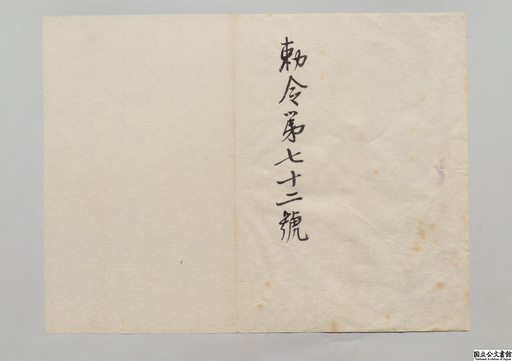 勅令第七十二號
国立公文書館
National Archives of Japan